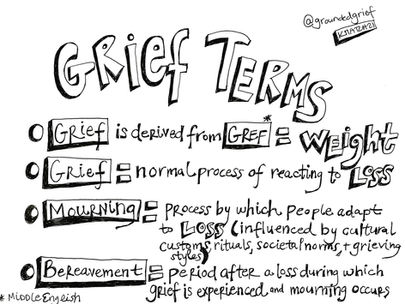 @groundedgrief
GRIEF TERMS
Grief is derived from GREF* = WEIGHT
Grief = normal process of reacting to LOSS
MOURNING = PROCESS BY which PEOPLE ADAPT
to LOSS (influenced by cultural
customs, rituals, societal norms, + grieving
styles)
BEREAVEMENT = PERIOD AFTER a loss during which
grief is experienced and mourning occurs
* MIDDLE ENGLISH